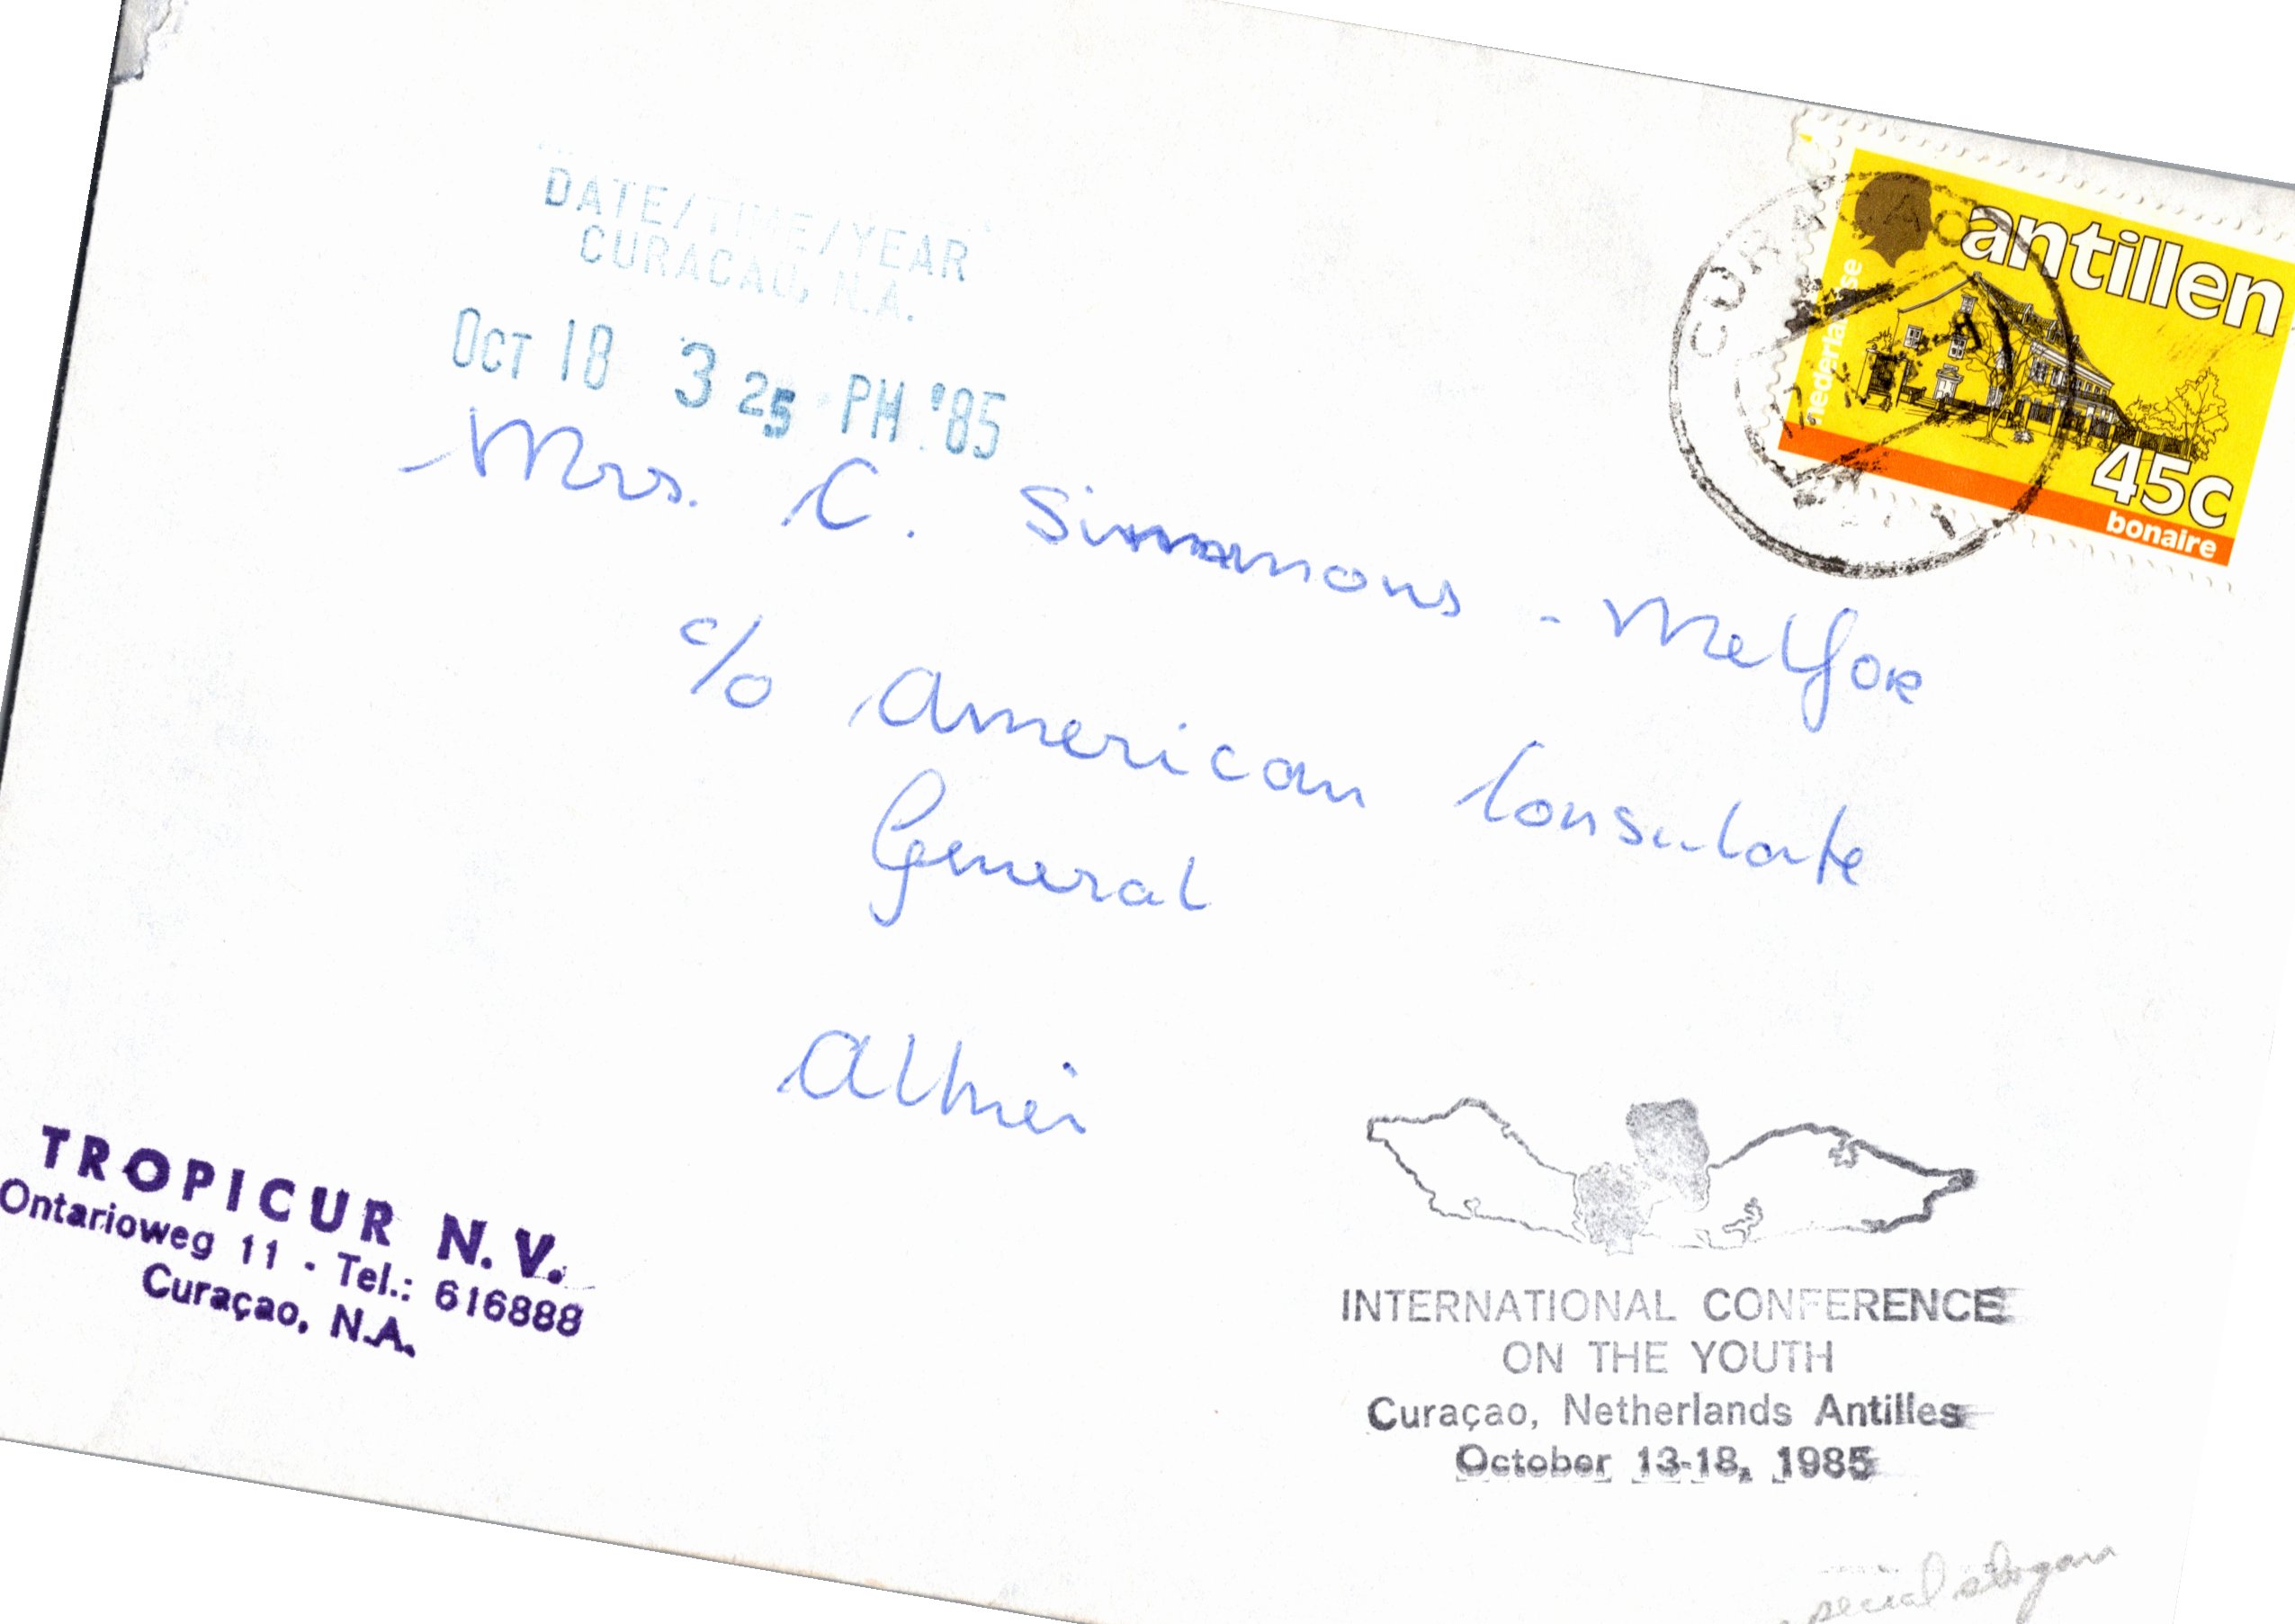 DATE/TIME/YEAR
CURACAO, N.A.
OCT 18 3 25 PM '85
antillen
nederlandse
45c
bonaire
CURAÇAO
Mrs. C. Simmons - Melfor
c/o American Consulate
General
Alhier
TROPICUR N.V.
Ontarioweg 11 - Tel.: 616888
Curaçao, N.A.
INTERNATIONAL CONFERENCE
ON THE YOUTH
Curaçao, Netherlands Antilles
October 13-18, 1985
special slogan